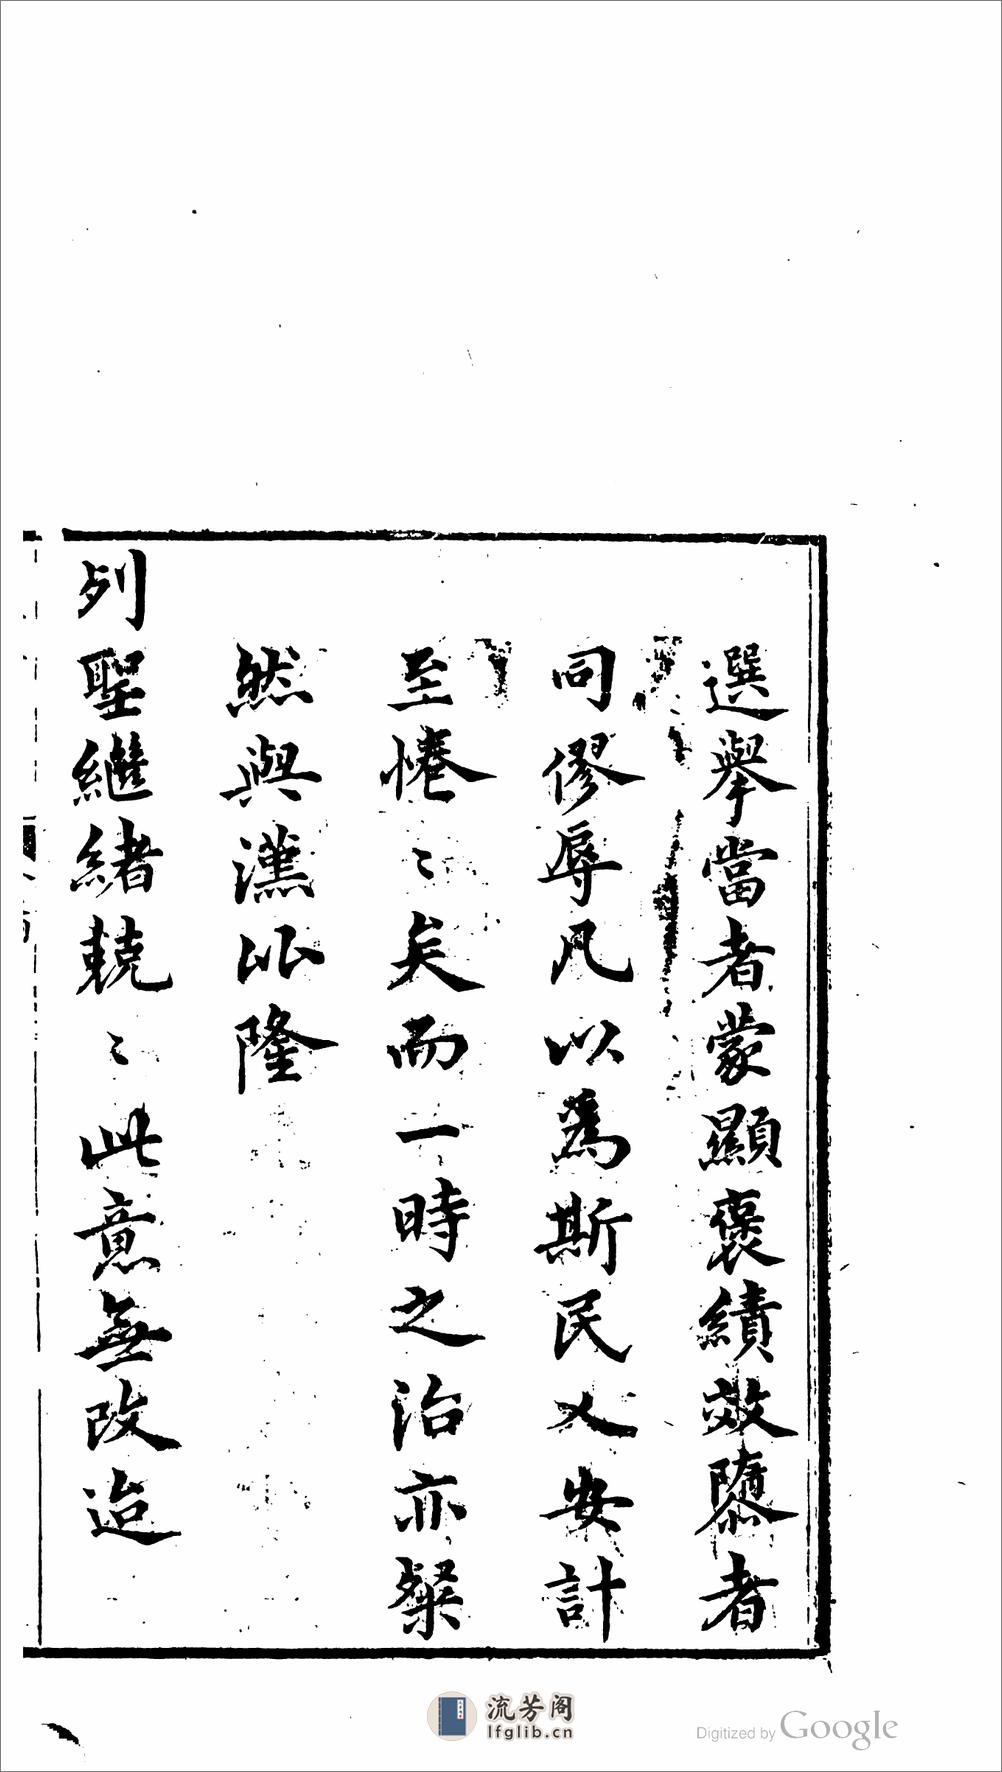 選擧當者蒙顯褒績效隳者
同僇辱凡以爲斯民乂安計
至惓〻〻矣而一時之治亦粲
然與漢比隆
列聖繼緒兢〻此意無改迨
流芳阁
lfglib.cn
Digitized by Google